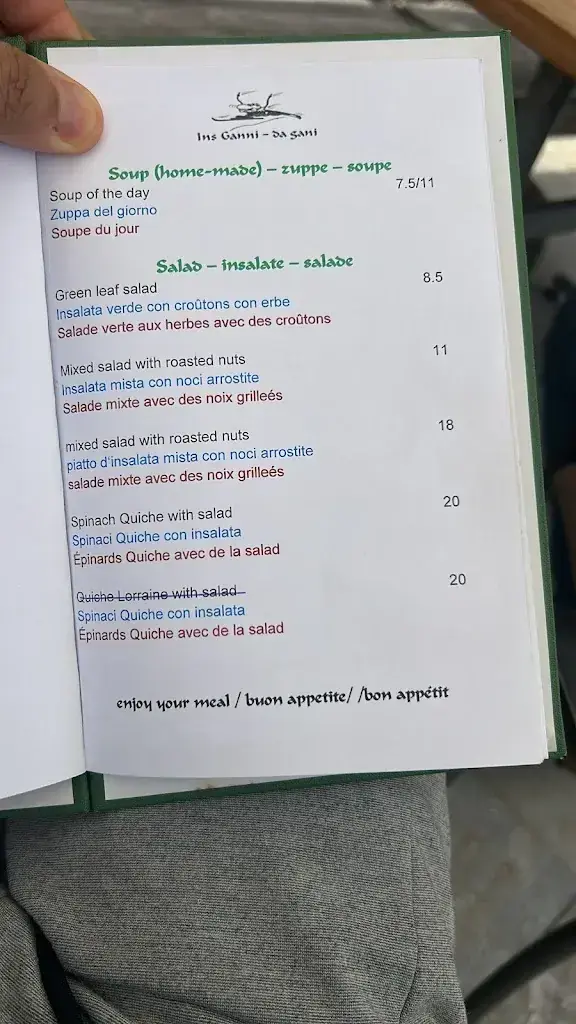 Ins Ganni - da gani
Soup (home-made) – zuppe – soupe
Soup of the day 7.5/11
Zuppa del giorno
Soupe du jour
Salad – insalate – salade
Green leaf salad 8.5
Insalata verde con croûtons con erbe
Salade verte aux herbes avec des croûtons
Mixed salad with roasted nuts 11
Insalata mista con noci arrostite
Salade mixte avec des noix grilleés
mixed salad with roasted nuts 18
piatto d'insalata mista con noci arrostite
salade mixte avec des noix grilleés
Spinach Quiche with salad 20
Spinaci Quiche con insalata
Épinards Quiche avec de la salad
Quiche Lorraine with salad 20
Spinaci Quiche con insalata
Épinards Quiche avec de la salad
enjoy your meal / buon appetite/ /bon appétit